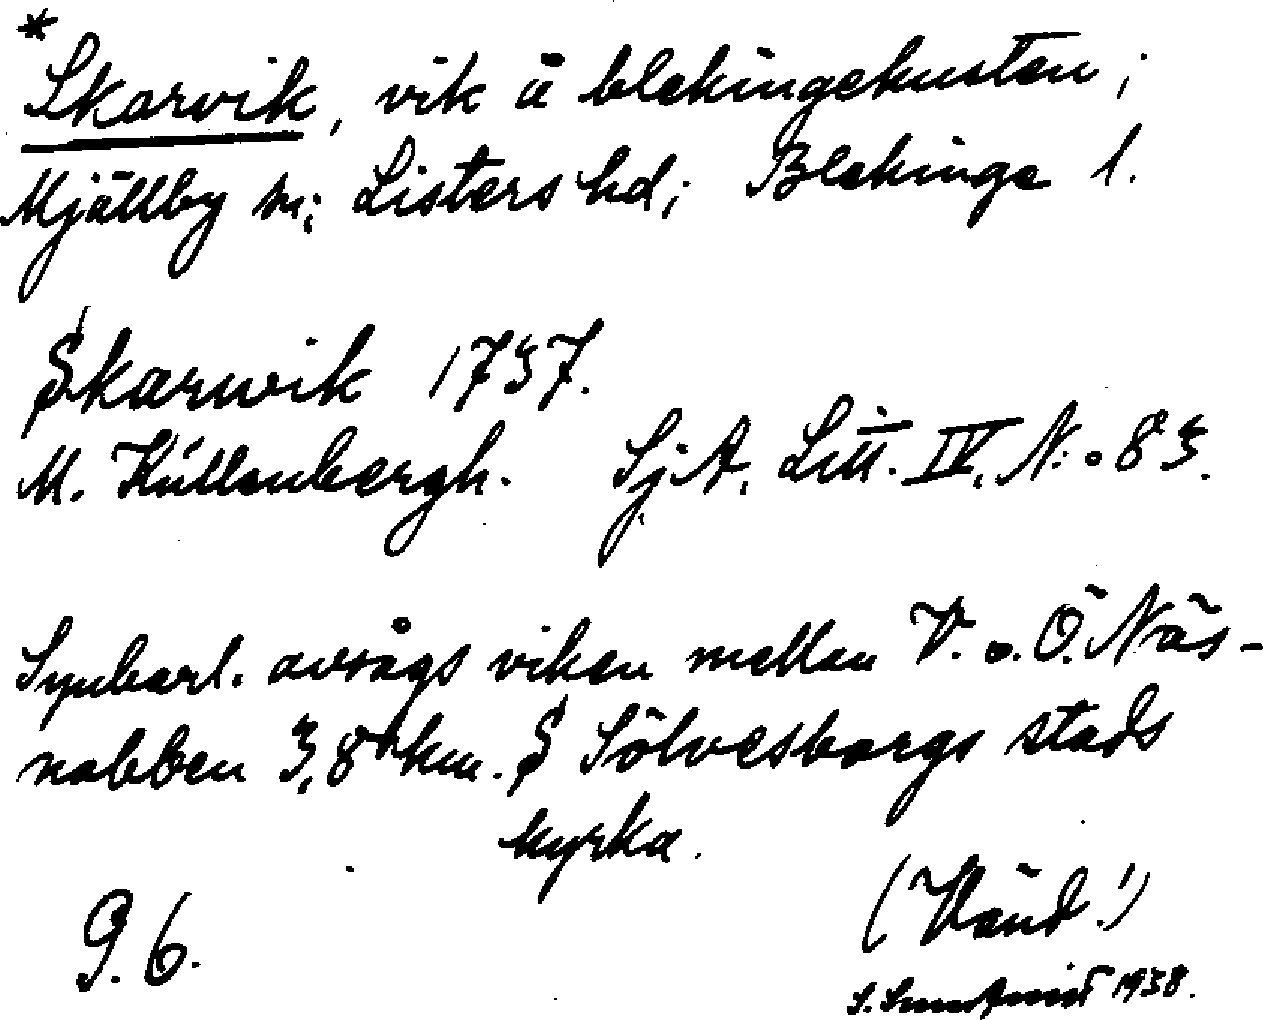 *
Skarvik, vik å blekingekusten;
Mjällby sn; Listers hd; Blekinge l.
Skarwik 1737.
M. Küllenbergh. SjA, Litt. IV, N:o 83.
Synbarl. avságs viken mellan V. o. Ö. Näs-
nabben 3,8 km. S Sölvesborgs stads
kyrka.
9.6.
(Vänd!)
S. Sundqvist 1938.